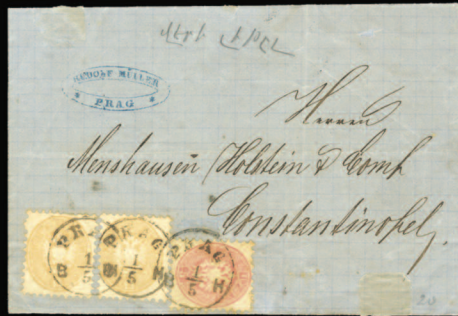 RUDOLF MÜLLER
PRAG
Herren
Menshausen Holstein & Comp
Constantinopel,
PRAG
B 1/5 H
PRAG
B 1/5 H
PRAG
B 1/5 H
20